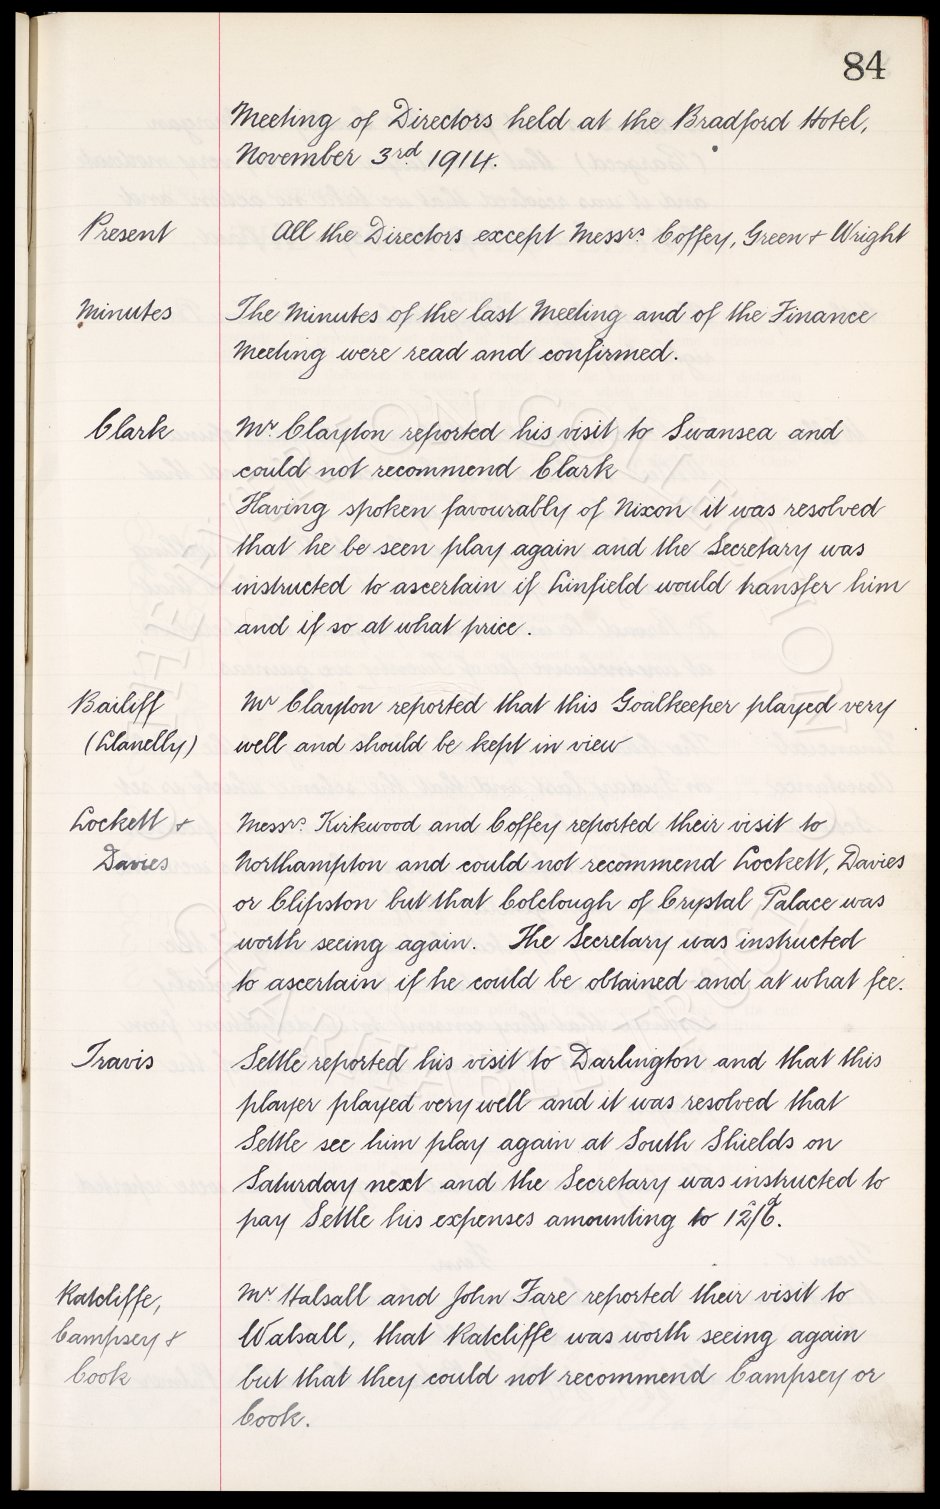 84
Meeting of Directors held at the Bradford Hotel,
November 3rd 1914.
Present
All the Directors except Messrs. Coffey, Green & Wright
Minutes
The Minutes of the last Meeting and of the Finance
Meeting were read and confirmed.
Clark
Mr. Clayton reported his visit to Swansea and
could not recommend Clark
Having spoken favourably of Nixon it was resolved
that he be seen play again and the Secretary was
instructed to ascertain if Linfield would transfer him
and if so at what price.
Bailiff
(Llanelly)
Mr Clayton reported that this Goalkeeper played very
well and should be kept in view
Lockett &
Davies
Messrs. Kirkwood and Coffey reported their visit to
Northampton and could not recommend Lockett, Davies
or Clipston but that Colclough of Crystal Palace was
worth seeing again. The Secretary was instructed
to ascertain if he could be obtained and at what fee.
Travis
Settle reported his visit to Darlington and that this
player played very well and it was resolved that
Settle see him play again at South Shields on
Saturday next and the Secretary was instructed to
pay Settle his expenses amounting to 12s/6d.
Ratcliffe,
Campsey &
Cook
Mr Halsall and John Fare reported their visit to
Walsall, that Ratcliffe was worth seeing again
but that they could not recommend Campsey or
Cook.